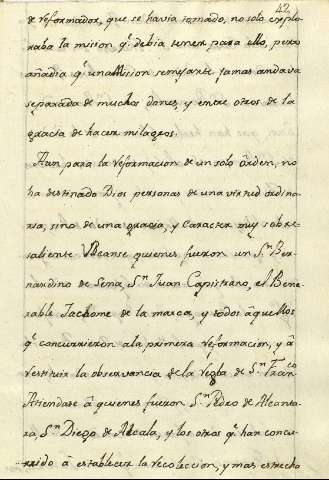 42
de reformador, que se havia tomado, no solo explo
raba la mision q.e debia tener para ello, pero
añadia q.e una Mision semejante jamas andava
separada de muchos dones, y entre otros de la
gracia de hacer milagros.
Aun para la reformacion de un solo órden, no
ha destinado Dios personas de una virtud ordina
ria, sino de una gracia, y caracter muy sobre
saliente. Veanse quienes fueron un S.n Ber
nardino de Sena, S.n Juan Capistrano, el Bene
rable Jachome de la marca, y todos âquellos
q.e concurrieron ala primera reformacion, y â
restituir la observancia de la regla de S.n Fran.co
Atiendase â quienes fueron S.n Pedro de Alcanta
ra, S.n Diego de Alcala, y los otros q.e han concu
rrido â establecer la recoleccion, y mas estrecho